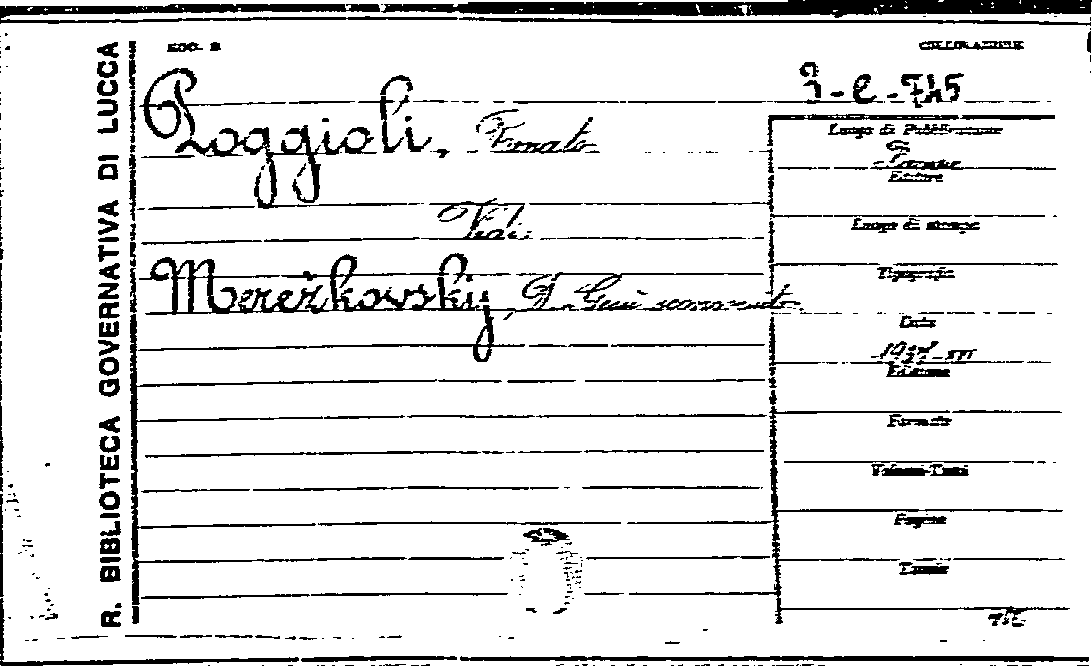 R. BIBLIOTECA GOVERNATIVA DI LUCCA
MOD. B
COLLOCAZIONE
Poggioli, Renato
Vedi:
Merežkovskij, D.
Luogo di Pubblicazione
Editore
Luogo di stampa
Tipografia
Data
1937-XVI
Edizione
Formato
Volumi-Tomi
Pagine
Tavole